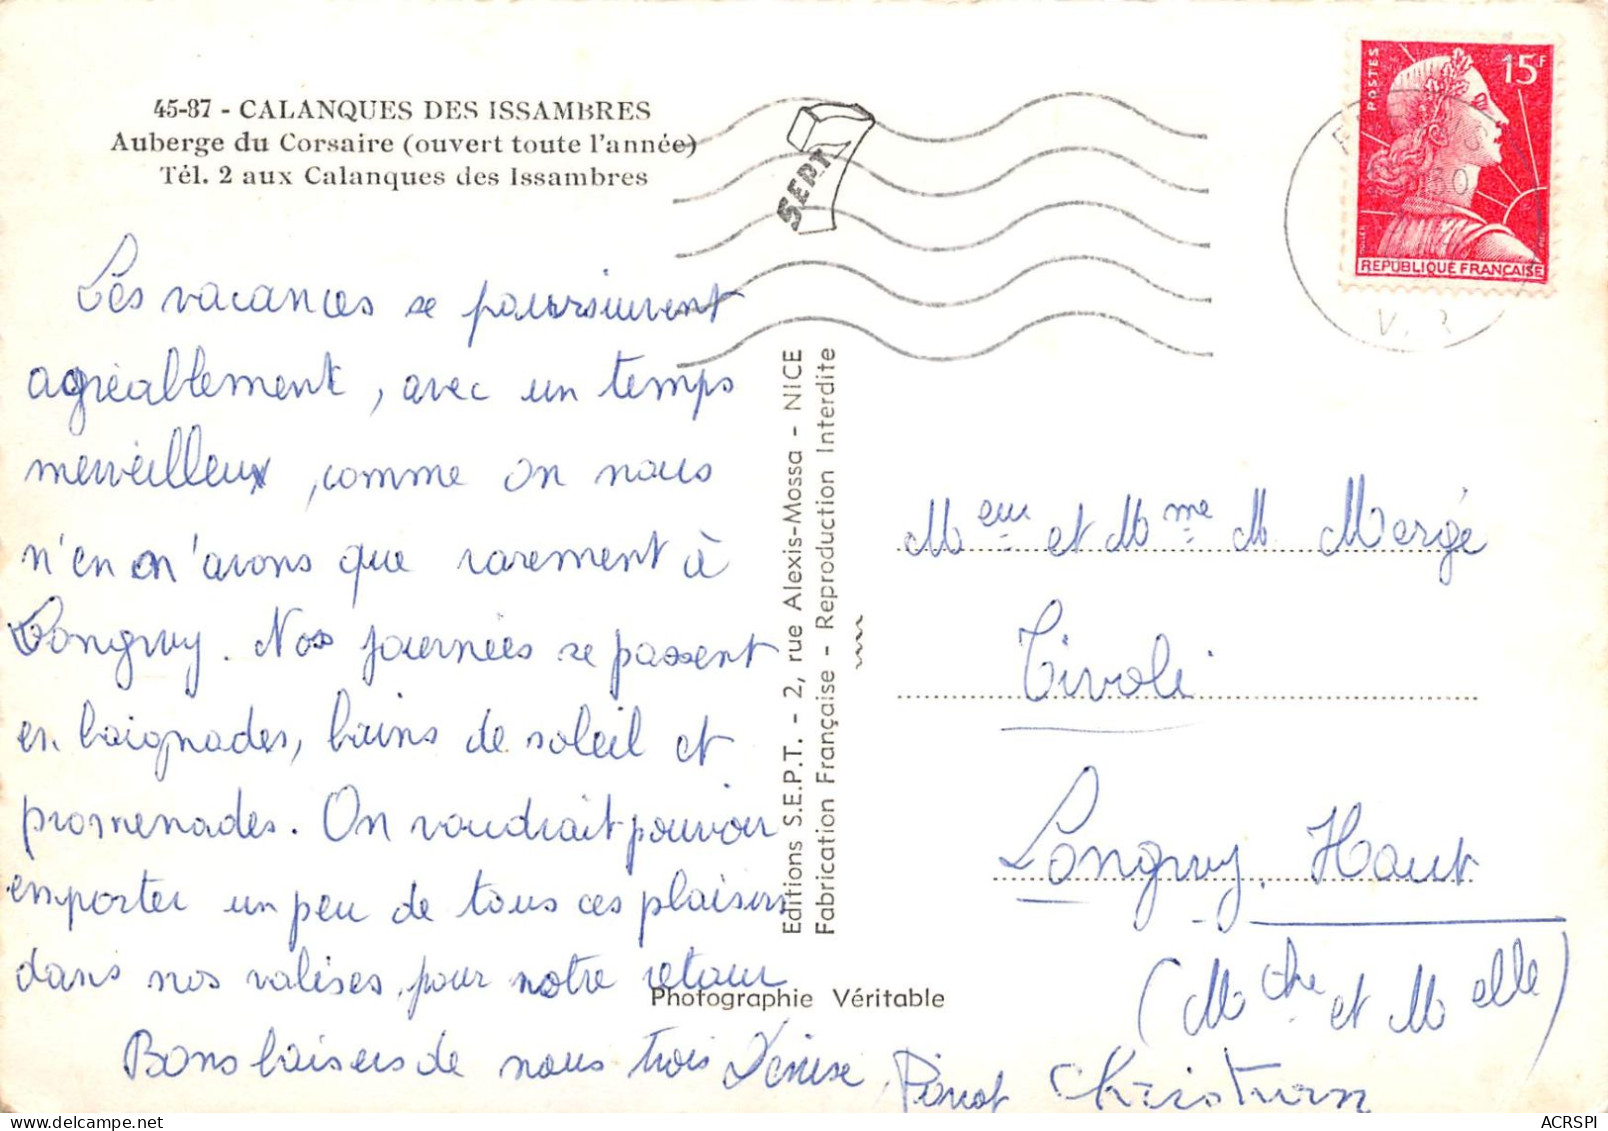 45-87 - CALANQUES DES ISSAMBRES
Auberge du Corsaire (ouvert toute l'année)
Tél. 2 aux Calanques des Issambres
SEPT
POSTES
15F
REPUBLIQUE FRANÇAISE
Les vacances se poursuivent
agréablement, avec un temps
merveilleux, comme on nous
n'en n'avons que rarement à
Longwy. Nos journées se passent
en baignades, bains de soleil et
promenades. On voudrait pouvoir
emporter un peu de tous ces plaisirs
dans nos valises, pour notre retour
Bons baisers de nous trois Denise, Pierrot Christian
Editions S.E.P.T. - 2, rue Alexis-Mossa - NICE
Fabrication Française - Reproduction Interdite
Photographie Véritable
Meur et Mme M. Mergé
Tivoli
Longwy. Haut
(Mthe et Melle)
ACRSPI